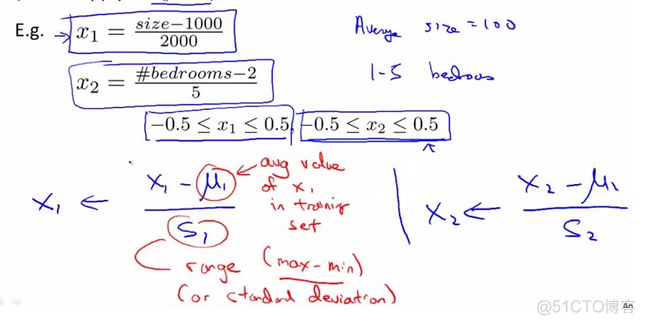 E.g. → x₁ = (size−1000)/2000
Average size = 100
x₂ = (#bedrooms−2)/5
1-5 bedrooms
−0.5 ≤ x₁ ≤ 0.5, −0.5 ≤ x₂ ≤ 0.5
x₁ ← (x₁ − μ₁)/S₁
avg value
of x₁
in training
set
x₂ ← (x₂ − μ₂)/S₂
range (max-min)
(or standard deviation)
@51CTO博客
An